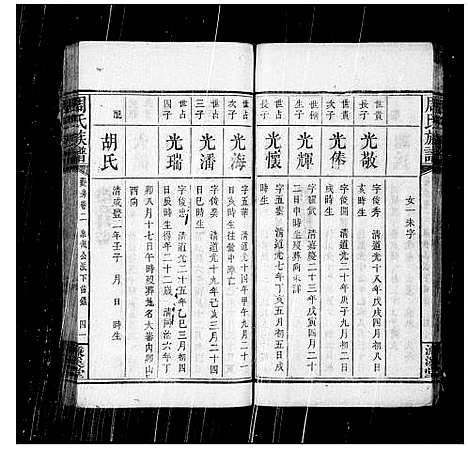 周氏族譜
女 未字
世貴
長子
光敬
字俊秀 清道光十八年戊戌四月初八日
亥時生
世貴
次子
光俸
字俊開 清道光二十年庚子九月初二日
時生
光輝
清嘉慶二十三年戊寅四月二十
二日申時生 歿葬向未詳
世占
長子
光懷
字五 清道光七年丁亥五月初五日戌
時生
世占
次子
光海
字五 清道光十四年甲午九月二十一
日亥時生往營中陣亡
世占
三子
光潘
字俊 清道光十九年己亥三月二十四
日巳時生
世占
四子
光瑞
字俊 清道光二十五年乙巳三月初四
日亥時生得年二十二歲 清同治六年丁
卯八月十七日午時歿葬地名大 山
西向
配
胡氏
清咸豐二年壬子 月 日 時生
周氏族譜
卷二
四